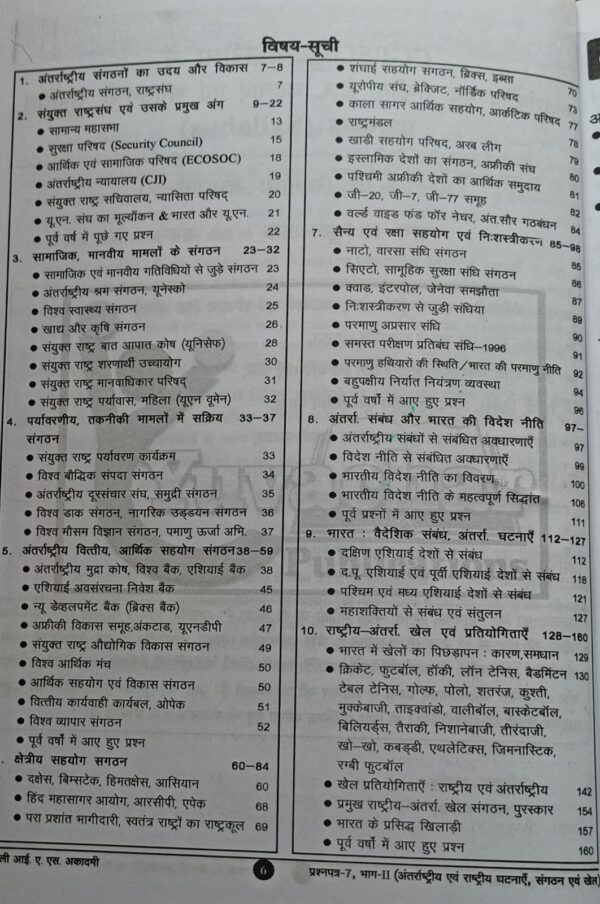 विषय-सूची
1. अंतर्राष्ट्रीय संगठनों का उदय और विकास 7-8
● अंतर्राष्ट्रीय संगठन, राष्ट्रसंघ 7
2. संयुक्त राष्ट्रसंघ एवं उसके प्रमुख अंग 9-22
● सामान्य महासभा 13
● सुरक्षा परिषद (Security Council) 15
● आर्थिक एवं सामाजिक परिषद (ECOSOC) 18
● अंतर्राष्ट्रीय न्यायालय (CJI) 19
● संयुक्त राष्ट्र सचिवालय, न्यासिता परिषद् 20
● यू.एन. संघ का मूल्याँकन & भारत और यू.एन. 21
● पूर्व वर्ष में पूछे गए प्रश्न 22
3. सामाजिक, मानवीय मामलों के संगठन 23-32
● सामाजिक एवं मानवीय गतिविधियों से जुड़े संगठन 23
● अंतर्राष्ट्रीय श्रम संगठन, यूनेस्को 24
● विश्व स्वास्थ्य संगठन 25
● खाद्य और कृषि संगठन 26
● संयुक्त राष्ट्र बात आपात कोष (यूनिसेफ) 28
● संयुक्त राष्ट्र शरणार्थी उच्चायोग 30
● संयुक्त राष्ट्र मानवाधिकार परिषद् 31
● संयुक्त राष्ट्र पर्यावास, महिला (यूएन वूमेन) 32
4. पर्यावरणीय, तकनीकी मामलों में सक्रिय 33-37
संगठन
● संयुक्त राष्ट्र पर्यावरण कार्यक्रम 33
● विश्व बौद्धिक संपदा संगठन 34
● अंतर्राष्ट्रीय दूरसंचार संघ, समुद्री संगठन 35
● विश्व डाक संगठन, नागरिक उड्डयन संगठन 36
● विश्व मौसम विज्ञान संगठन, पमाणु ऊर्जा अभि. 37
5. अंतर्राष्ट्रीय वित्तीय, आर्थिक सहयोग संगठन 38-59
● अंतर्राष्ट्रीय मुद्रा कोष, विश्व बैंक, एशियाई बैंक 38
● एशियाई अवसंरचना निवेश बैंक 45
● न्यू डेव्हलपमेंट बैंक (ब्रिक्स बैंक) 46
● अफ्रीकी विकास समूह, अंकटाड, यूएनडीपी 47
● संयुक्त राष्ट्र औद्योगिक विकास संगठन 49
● विश्व आर्थिक मंच 50
● आर्थिक सहयोग एवं विकास संगठन 50
● वित्तीय कार्यवाही कार्यबल, ओपेक 51
● विश्व व्यापार संगठन 52
● पूर्व वर्षो में आए हुए प्रश्न
. क्षेत्रीय सहयोग सगठन 60-84
● दक्षेस, बिम्सटेक, हिमतक्षेस, आसियान 60
● हिंद महासागर आयोग, आरसीपी, एपेक 68
● परा प्रशांत भागीदारी, स्वतंत्र राष्ट्रों का राष्ट्रकूल 69
● शंघाई सहयोग संगठन, ब्रिक्स, इब्सा 70
● यूरोपीय संघ, ब्रेक्जिट, नॉर्डिक परिषद 73
● काला सागर आर्थिक सहयोग, आर्कटिक परिषद 77
● राष्ट्रमंडल 78
● खाडी सहयोग परिषद, अरब लीग 79
● इस्लामिक देशों का संगठन, अफ्रीकी संघ 80
● पश्चिमी अफ्रीकी देशों का आर्थिक समुदाय 81
● जी-20, जी-7, जी-77 समूह 82
● वर्ल्ड वाइड फंड फॉर नेचर, अंत.सौर गठबंधन 84
7. सैन्य एवं रक्षा सहयोग एवं निःशस्त्रीकरण 85-98
● नाटो, वारसा संधि संगठन 85
● सिएटो, सामूहिक सुरक्षा संधि संगठन 86
● क्वाड, इंटरपोल, जेनेवा समझौता 87
● निःशस्त्रीकरण से जुडी संधिया 89
● परमाणु अप्रसार संधि 90
● समस्त परीक्षण प्रतिबंध संधि-1996 91
● परमाणु हथियारों की स्थिति/भारत की परमाणु नीति 92
● बहुपक्षीय निर्यात नियंत्रण व्यवस्था 94
● पूर्व वर्षों में आए हुए प्रश्न 96
8. अंतर्रा. संबंध और भारत की विदेश नीति 97-
● अंतर्राष्ट्रीय संबंधों से संबंधित अवधारणाएँ 97
● विदेश नीति से संबंधित अवधारणाएँ 99
● भारतीय विदेश नीति का विवरण 100
● भारतीय विदेश नीति के महत्वपूर्ण सिद्धांत 106
● पूर्व प्रश्नों में आए हुए प्रश्न 111
9. भारत : वैदेशिक संबंध, अंतर्रा. घटनाएँ 112-127
● दक्षिण एशियाई देशों से संबंध 112
● द.पू. एशियाई एवं पूर्वी एशियाई देशों से संबंध 118
● पश्चिम एवं मध्य एशियाई देशों से संबंध 121
● महाशक्तियों से संबंध एवं संतुलन 127
10. राष्ट्रीय-अंतर्रा. खेल एवं प्रतियोगिताएँ 128-160
● भारत में खेलों का पिछड़ापन : कारण,समधान 129
● क्रिकेट, फुटबॉल, हॉकी, लॉन टेनिस, बैडमिंटन 130
टेबल टेनिस, गोल्फ, पोलो, शतरंज, कुश्ती,
मुक्केबाजी, ताइक्वांडो, वालीबॉल, बास्केटबॉल,
बिलियर्ड्स, तैराकी, निशानेबाजी, तीरंदाजी,
खो-खो, कबड्डी, एथलेटिक्स, जिमनास्टिक,
रग्बी फुटबॉल
● खेल प्रतियोगिताएँ : राष्ट्रीय एवं अंतर्राष्ट्रीय 142
● प्रमुख राष्ट्रीय-अंतर्रा. खेल संगठन, पुरस्कार 154
● भारत के प्रसिद्ध खिलाड़ी 157
● पूर्व वर्षों में आए हुए प्रश्न 160
ली आई. ए. एस. अकादमी
6
प्रश्नपत्र-7, भाग-II (अंतर्राष्ट्रीय एवं राष्ट्रीय घटनाएँ, संगठन एवं खेल)